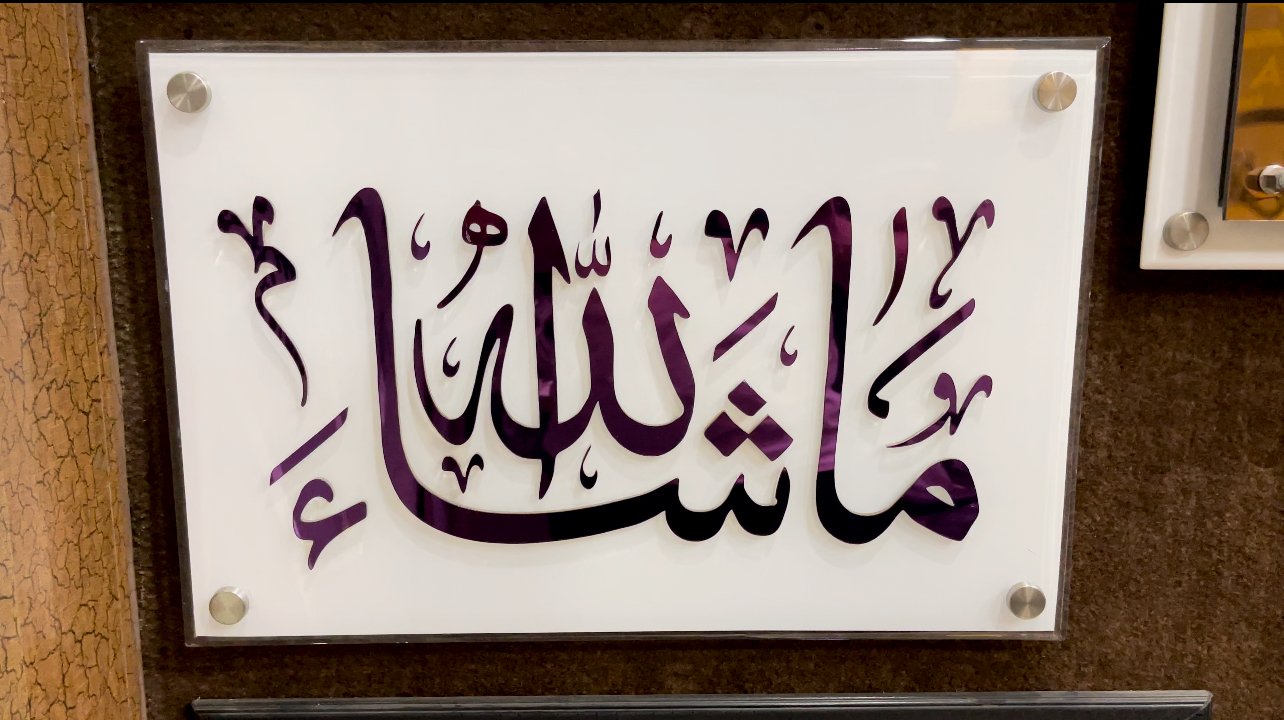 مَا شَاءَ اللّٰه